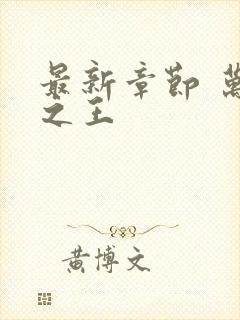 最新章節 萬
之王
黃博文